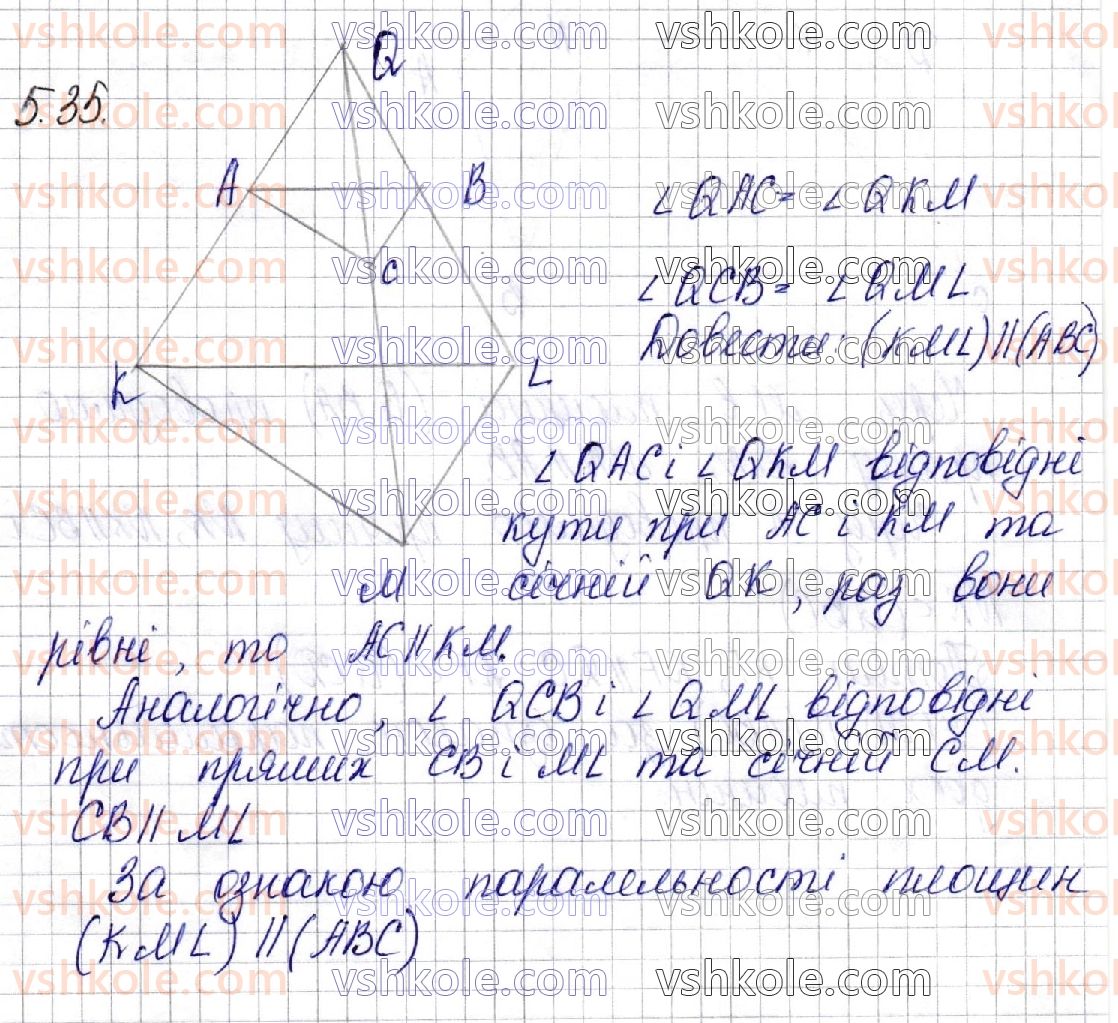 vshkole.com vshkole.com vshkole.com vshkole.com
5.35.
Q
A
B
C
K
L
M
∠QAC = ∠QKM
∠QCB = ∠QML
Довести: (KML) || (ABC)
∠QAC і ∠QKM відповідні
кути при AC і KM та
січній QK, раз вони
рівні, то AC || KM.
Аналогічно, ∠QCB і ∠QML відповідні
при прямих CB і ML та січній CM.
CB || ML
За ознакою паралельності площин
(KML) || (ABC)